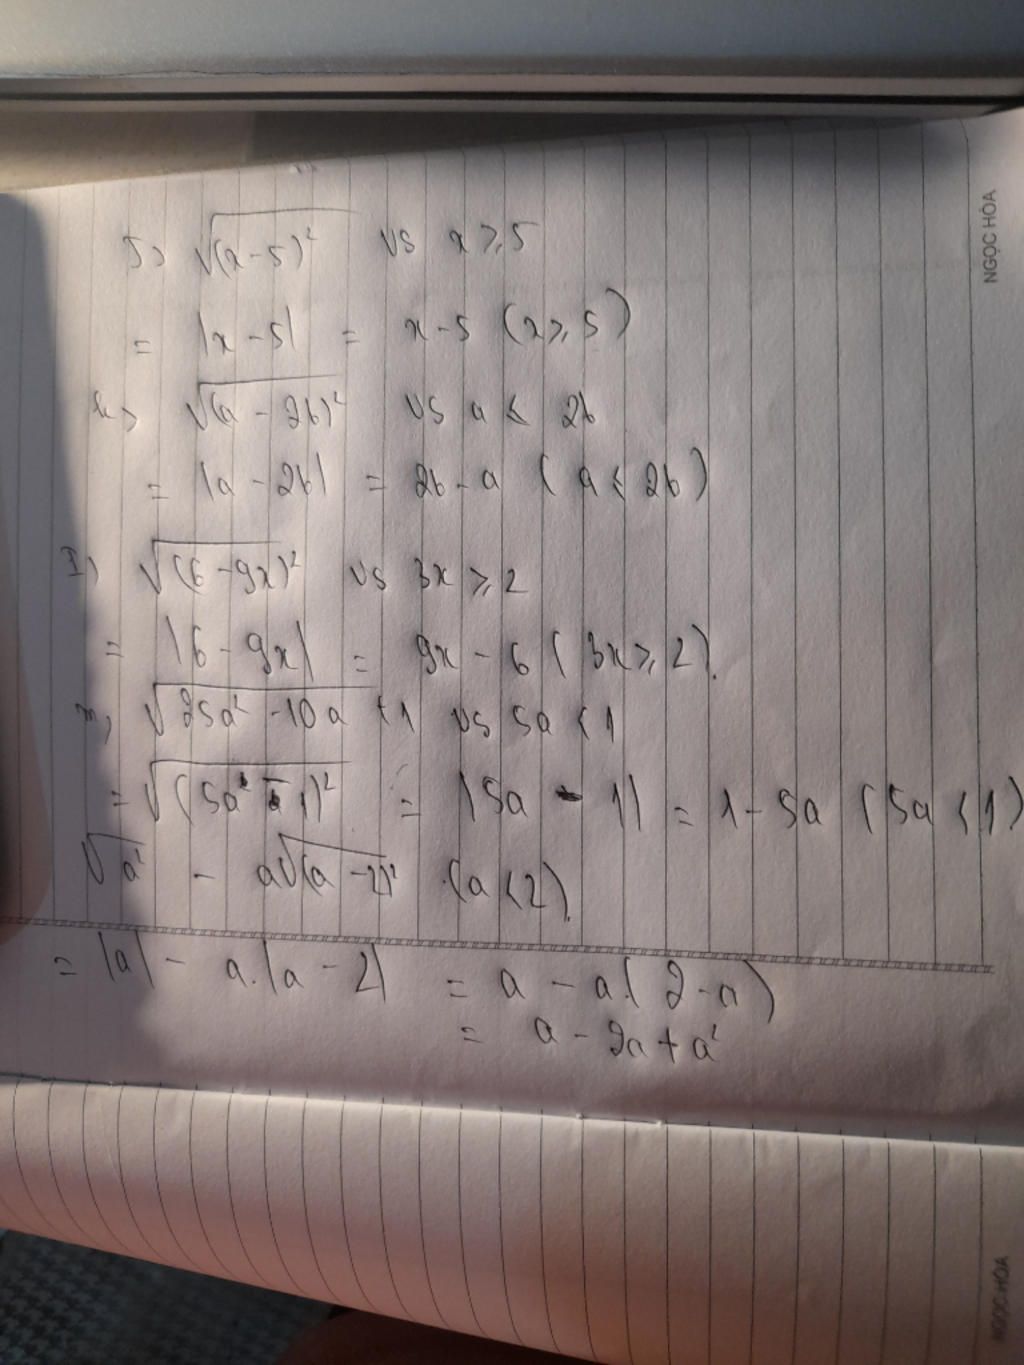 j) √(x-5)² vs x ≥ 5
= |x-5| = x-5 (x ≥ 5)
k) √(a-2b)² vs a ≤ 2b
= |a-2b| = 2b-a (a < 2b)
l) √(6-9x)² vs 3x ≥ 2
= |6-9x| = 9x-6 (3x ≥ 2).
m) √25a²-10a+1 vs 5a < 1
= √(5a-1)² = |5a-1| = 1-5a (5a < 1)
√a² - a√(a-2)² (a < 2).
= |a| - a.|a-2| = a - a.(2-a)
= a - 2a + a²
NGỌC HÒA
NGỌC HÒA